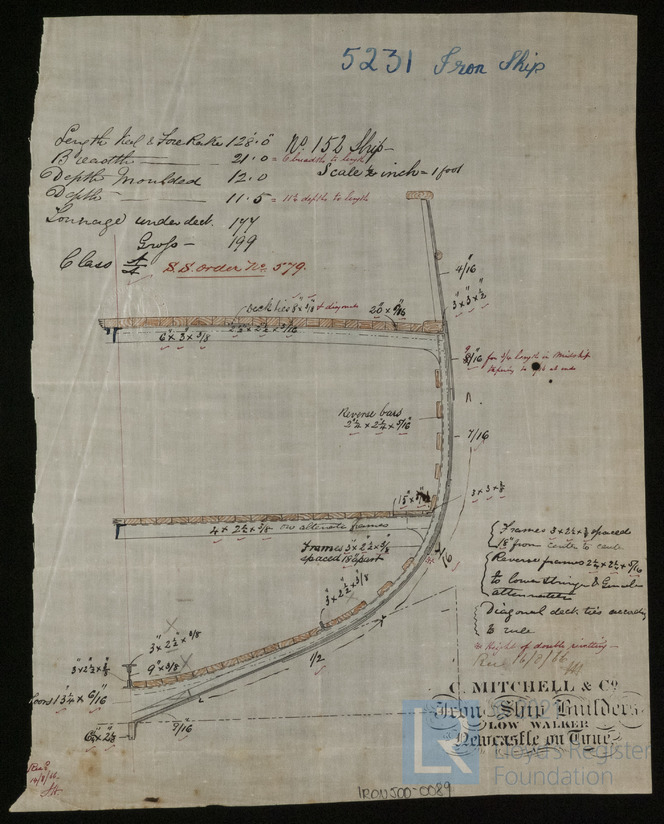 5231 Iron Ship
Length Keel & Fore Rake 128.0
No. 152 Ship
Breadth 21.0 = 6 breadths to length
Scale ½ inch = 1 foot
Depth Moulded 12.0
Depth 11.5 = 11½ depths to length
Tonnage under deck 177
Gross 199
Class A/A S.S. order No. 579.
4/16
3 x 3 x ½
deck ties 8 x 3/8 & diagonals 20 x 6/16
2½ x 2½ x 5/16
6 x 3 x 3/8
8/16 for ¾ length in Midship
tapering to 7/16 at ends
Reverse bars
2¼ x 2¼ x 5/16
7/16
3 x 3 x 3/8
4 x 2½ x 3/8 on alternate frames
Frames 3 x 2½ x 3/8
spaced 18" apart
Frames 3 x 2½ x 3/8 spaced
18" from centre to centre
Reverse frames 2½ x 2½ x 5/16
to lower stringer & Gunwale
alternately
Diagonal deck ties according
to rule
Height of double rivetting
Recd 16/8/66
3 x 2½ x 3/8
3" x 2½" x 6/8
9" x 3/8
3 x 2½ x 3/8
1/2
13¼ x 6/16
9/16
6 x 2½
C. MITCHELL & Co
Iron Ship Builders
LOW WALKER
Newcastle on Tyne
Recd
14/8/66
LR Lloyd's Register
Foundation
IRON500-0089